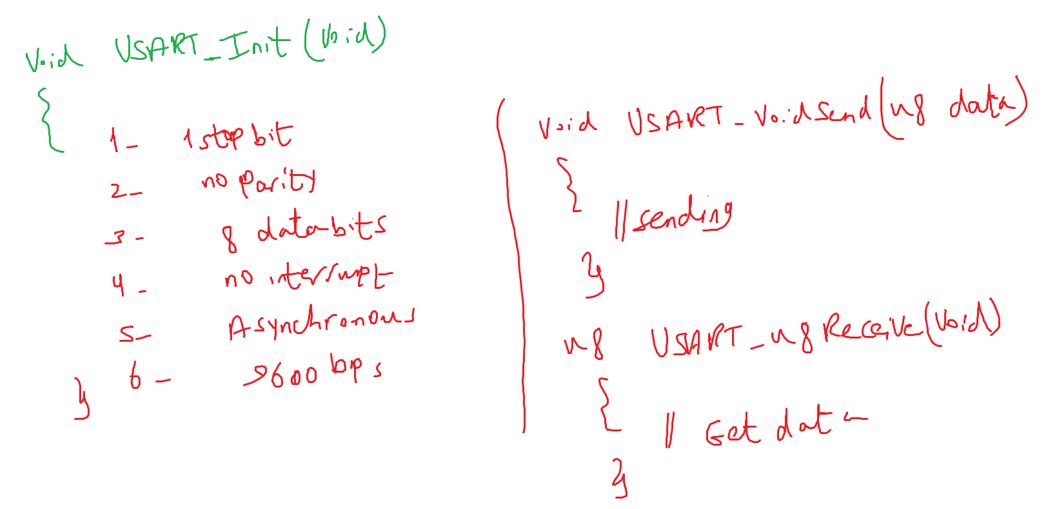 void USART_Init(void)
{
1- 1 stop bit
2- no parity
3- 8 data bits
4- no interrupt
5- Asynchronous
6- 9600 bps
}
void USART_voidSend(u8 data)
{
//sending
}
u8 USART_u8Receive(void)
{
// Get data
}